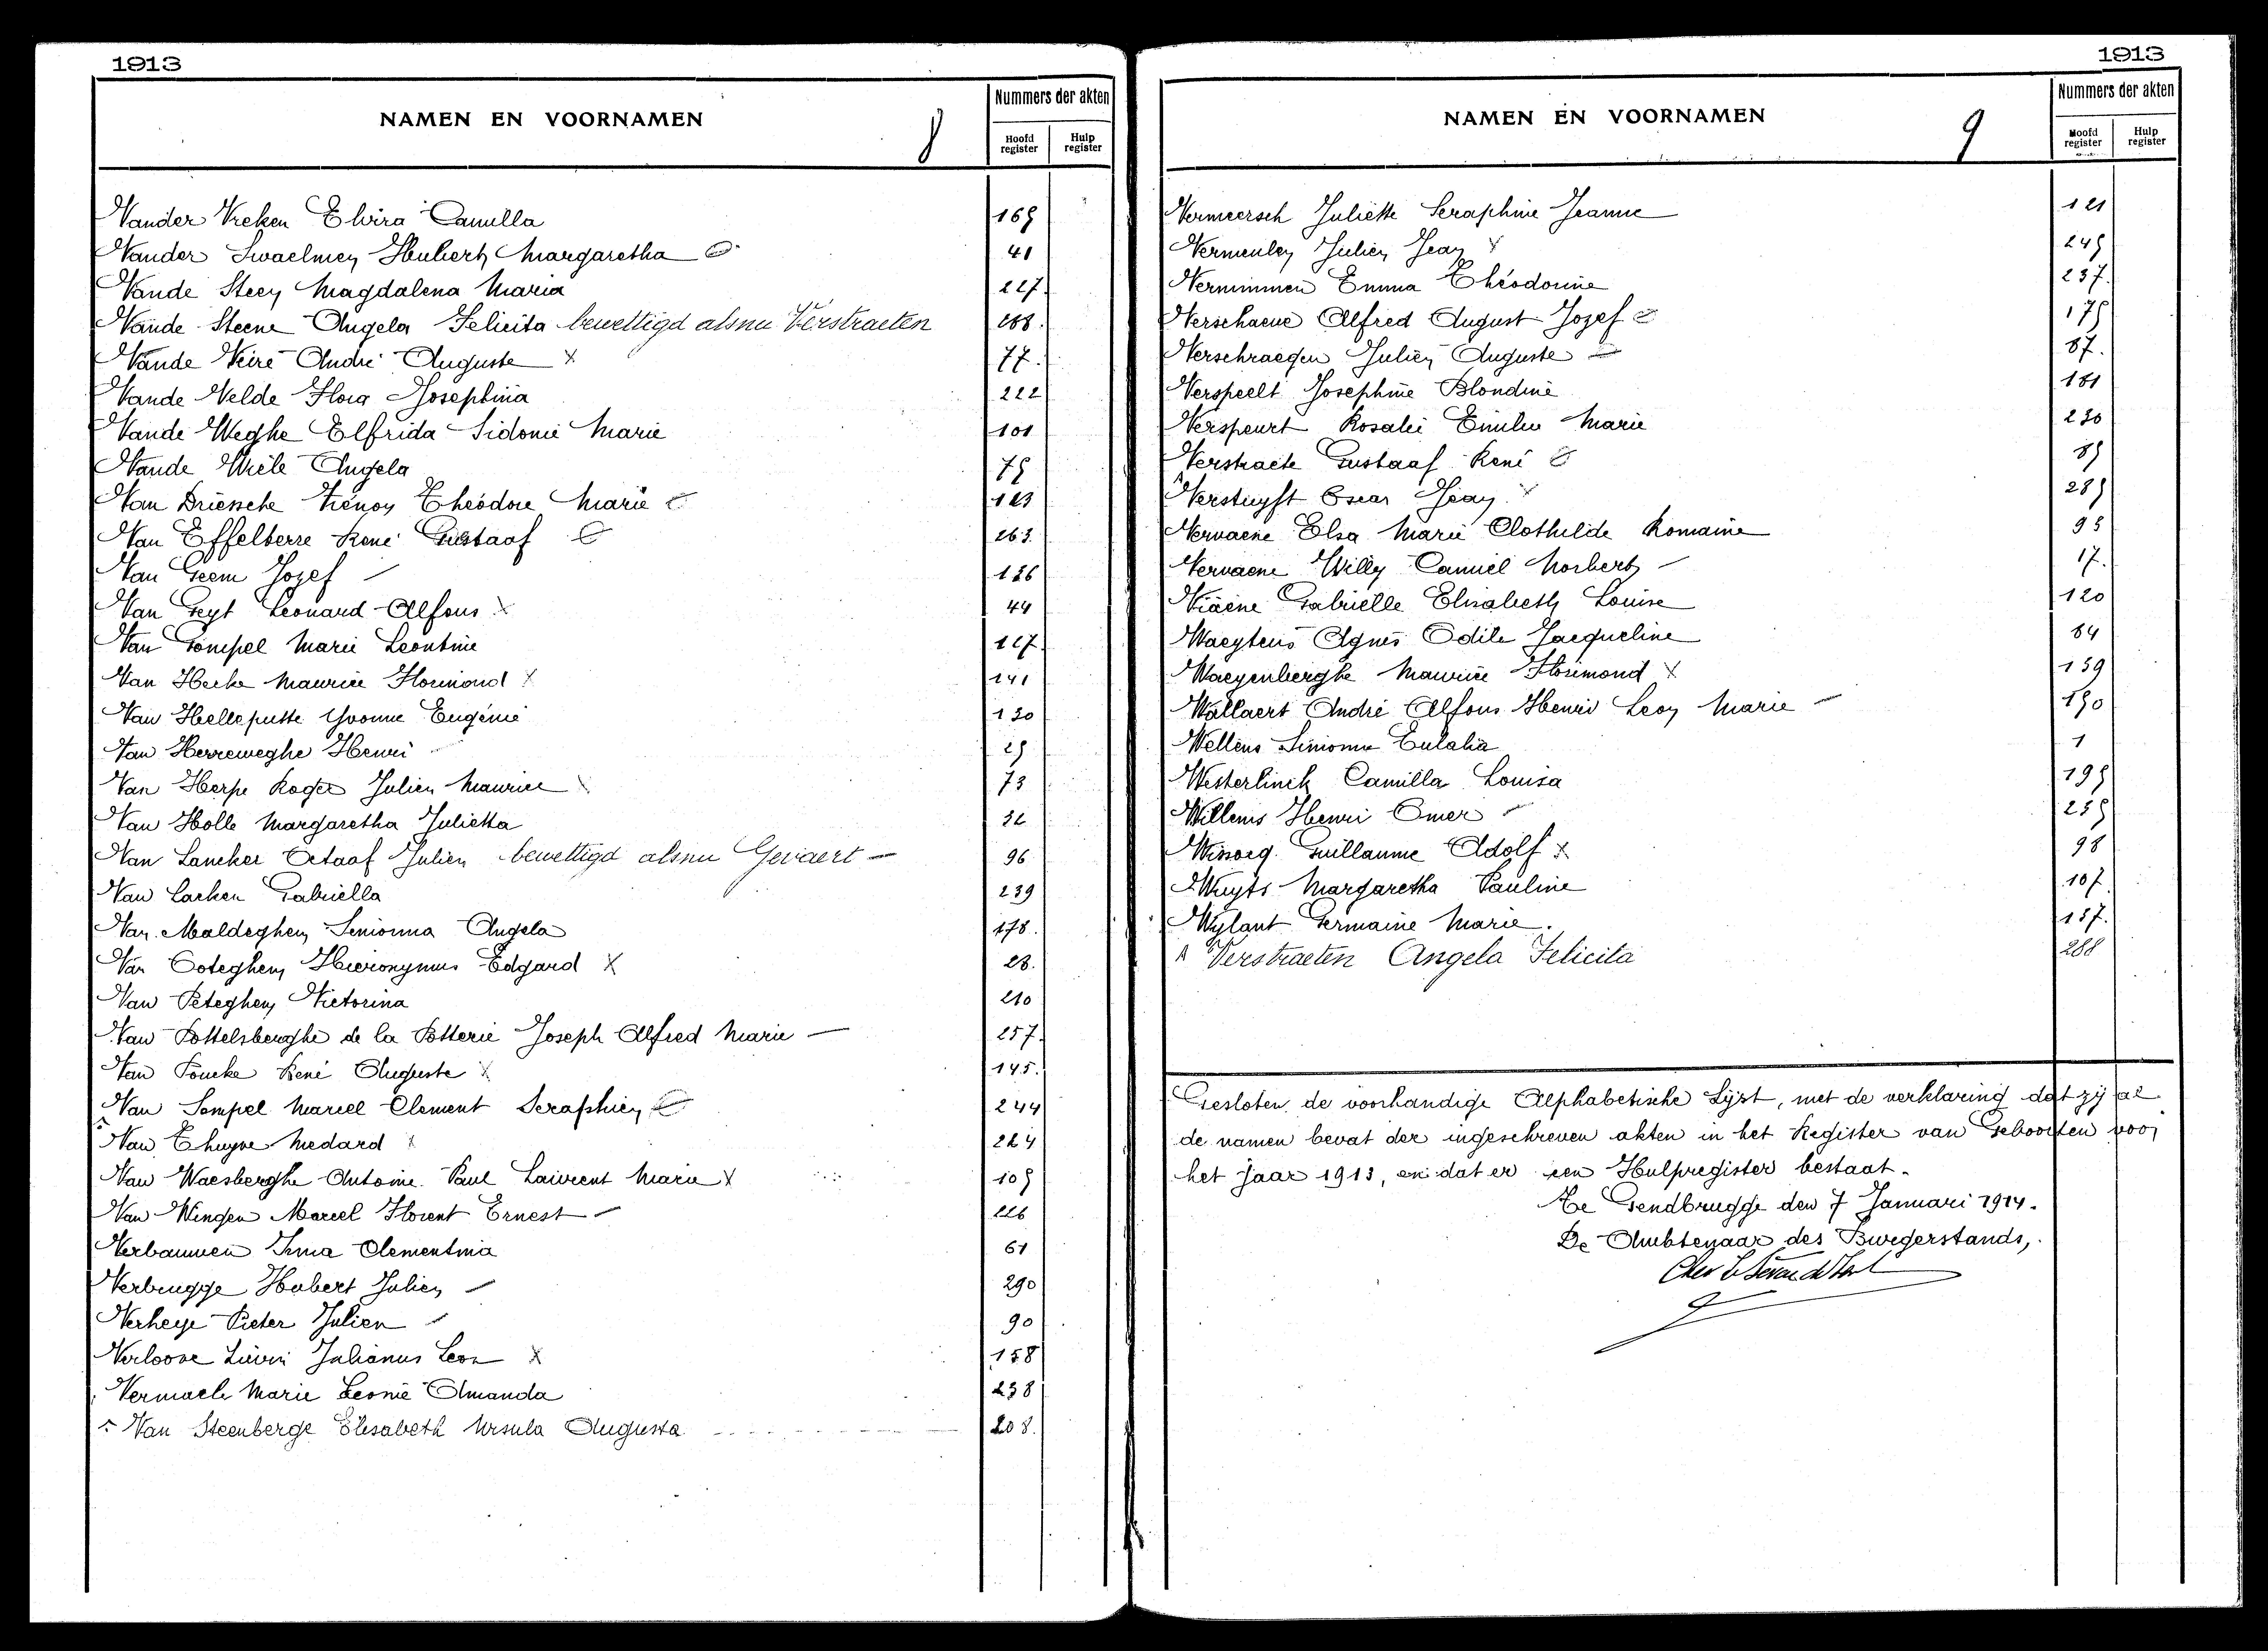 1913
NAMEN EN VOORNAMEN
8
Nummers der akten
Hoofd register
Hulp register
Vander Vreken Elvira Camilla 169
Vander Swaelmen Hubert Margaretha 41
Vande Steen Magdalena Maria 227.
Vande Steene Angela Felicita bewettigd als nu Verstraeten 288.
Vande Veire André Auguste x 77.
Vande Velde Flora Josephina 222
Vande Weghe Elfrida Sidonie Marie 101
Vande Wiele Angela 75
Van Driessche Zénon Théodore Marie 123
Van Effelterre René Gustaaf 263.
Van Geem Jozef 136
Van Geyt Leonard Alfons x 44
Van Gompel Marie Leontine 127.
Van Hecke Maurice Florimond x 141
Van Helleputte Yvonne Eugénie 130
Van Herreweghe Henri 25
Van Herpe Roger Julien Maurice 73
Van Holle Margaretha Julietta 32
Van Lancker Octaaf Julien bewettigd als nu Gevaert — 96
Van Laeken Gabriella 239
Van Maldeghem Senionna Angela 178.
Van Ooteghem Hieronymus Edgard x 28.
Van Peteghem Victorina 210
Van Pottelsberghe de la Potterie Joseph Alfred Marie — 257.
Van Poucke René Auguste x 145.
Van Sompel Marcel Clement Seraphien 244
Van Thuyne Medard x 224
Van Waesberghe Antoine Paul Laurent Marie x 105
Van Wingen Marcel Florent Ernest — 226
Verbauwen Irma Clementina 61
Verbrugge Hubert Julien 290
Verheye Pieter Julien 90
Verloove Liévin Julianus Leon x 158
Vermaele Marie Leonie Amanda 238
Van Steenberge Elisabeth Ursula Augusta 208.
1913
NAMEN EN VOORNAMEN
9
Nummers der akten
Hoofd register
Hulp register
Vermeersch Juliette Seraphine Jeanne 121
Vermeulen Julien Jean x 245
Vernimmen Emma Théodorine 237.
Verschaeve Alfred August Jozef 175
Verschraegen Julien Auguste 87.
Verspeelt Josephine Blondine 181
Verspeurt Rosalie Emilie Marie 230
Verstraete Gustaaf René 85
Verstuyft Oscar Jean 285
Vervaene Elsa Marie Clothilde Romaine 95
Vervaene Willy Camiel Norbert 17.
Viaene Gabrielle Elisabeth Louise 120
Waeytens Agnes Odile Jacqueline 64
Waeyenberghe Maurice Florimond x 139
Wallaert André Alfons Henri Leon Marie — 190
Wellens Simonne Eulalia 1
Westerlinck Camilla Louisa 195
Willems Henri Omer 255
Guillaume Adolf x 98
Wuyts Margaretha Pauline 167.
Wylant Germaine Marie. 157.
Verstraeten Angela Felicita 288
Gesloten de voorhandige Alphabetische Lijst, met de verklaring dat zij al
de namen bevat der ingeschreven akten in het Register van Geboorten voor
het jaar 1913, en dat er een Hulpregister bestaat.
Te Gendbrugge den 7 Januari 1914.
De Ambtenaar des Burgerstands,